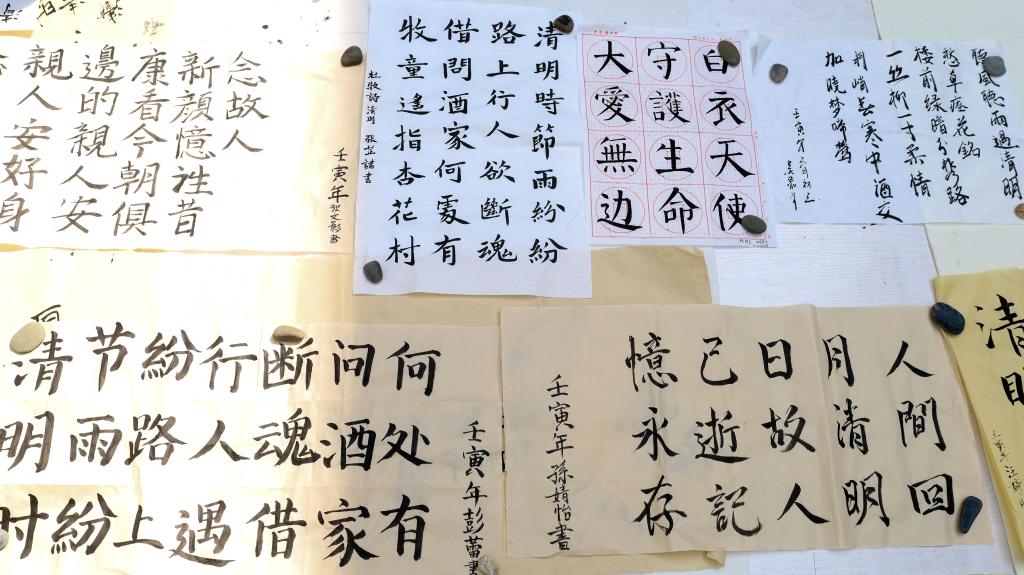 念故人
新顏憶往昔
康看今朝俱
邊的親人安
親人安好身
壬寅年
清明時節雨紛紛
路上行人欲斷魂
借問酒家何處有
牧童遙指杏花村
杜牧詩清明 張芷諾書
白衣天使
守護生命
大愛無边
聽風聽雨過清明
愁草瘞花銘
樓前綠暗分攜路
一丝柳一寸柔情
料峭春寒中酒交
加曉夢啼鶯
何处有
问酒家
断魂借
行人遇
紛路上
节雨紛
清明时
壬寅年彭蕾書
人間回
月清明
日故人
己逝記
憶永存
壬寅年孫婧怡書
清明